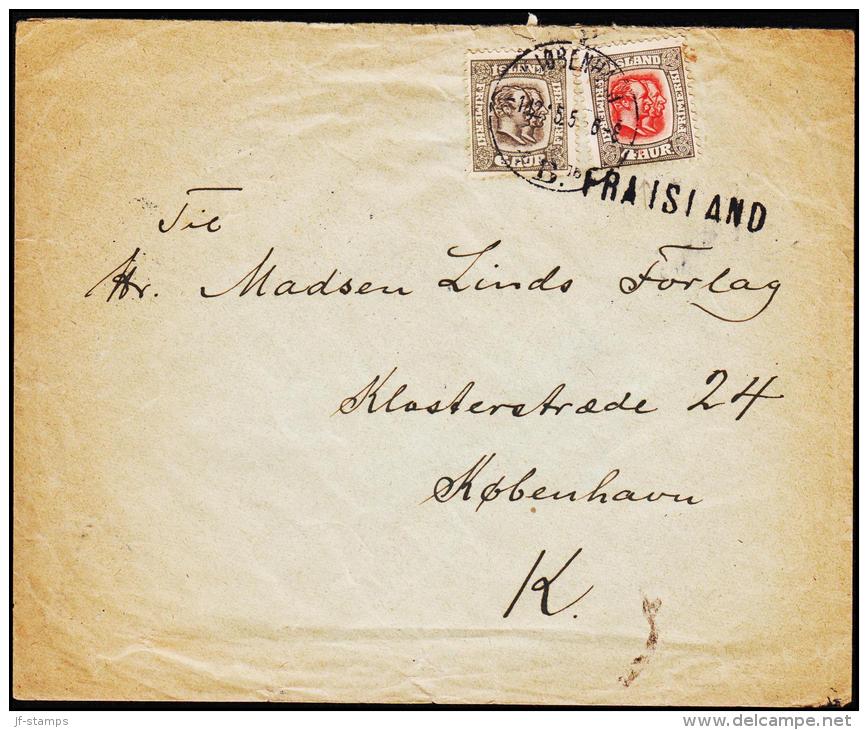 ISLAND
FRIMERKI
AUR
ISLAND
FRIMERKI
AUR
B.
FRA ISLAND
Til
Hr. Madsen Linds Forlag
Klosterstræde 24
København
K.
jf-stamps
delcampe.net